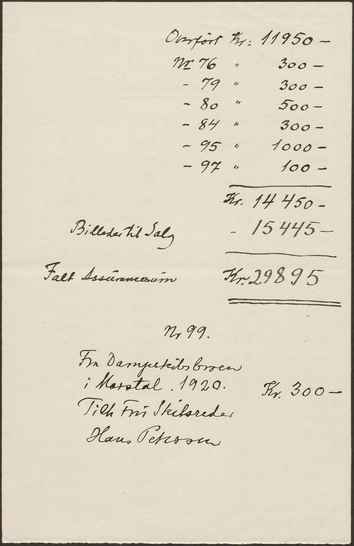 Overført Kr: 11950 -
Nr 76 " 300 -
- 79 " 300 -
- 80 " 500 -
- 84 " 300 -
- 95 " 1000 -
- 97 " 100 -
Kr. 14450 -
Billeder til Salg - 15445 -
Talt Assurancesum Kr. 29895
Nr 99.
Fra Dampskibsbroen
i Marstal. 1920. Kr. 300 -
Tilh Fru Skibsreder
Hans Peterson